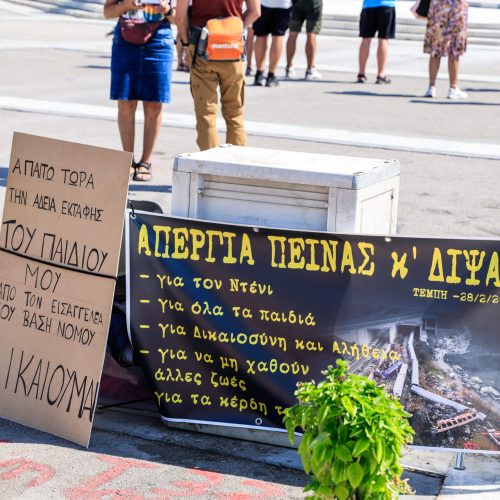 mantona
ΑΠΑΙΤΩ ΤΩΡΑ
ΤΗΝ ΑΔΕΙΑ ΕΚΤΑΦΗΣ
ΤΟΥ ΠΑΙΔΙΟΥ
ΜΟΥ
ΑΠΟ ΤΟΝ ΕΙΣΑΓΓΕΛΕΑ
ΠΟΥ ΒΑΣΗ ΝΟΜΟΥ
ΔΙΚΑΙΟΥΜΑΙ
ΑΠΕΡΓΙΑ ΠΕΙΝΑΣ κ' ΔΙΨΑ
ΤΕΜΠΗ -28/2/2
- για τον Ντένι
- για όλα τα παιδιά
- για Δικαιοσύνη και Αλήθεια
- για να μη χαθούν
άλλες ζωές
για τα κέρδη τ